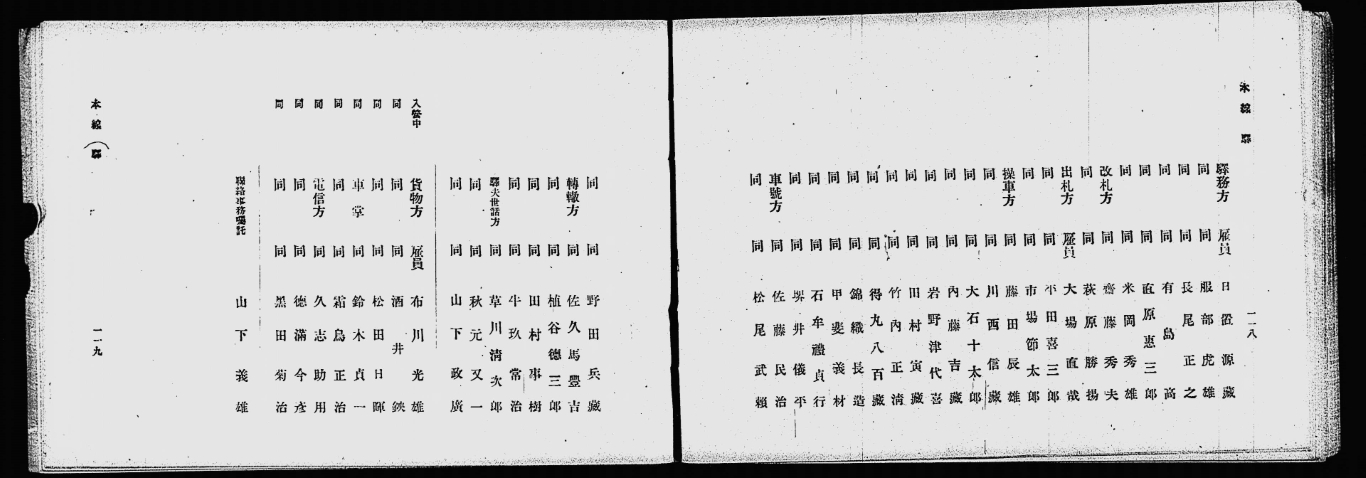 本線 驛
驛務方 雇員 日置源藏
同 同 服部虎雄
同 同 長尾正之
同 同 有島高
同 同 直原惠三郎
同 同 米岡秀雄
改札方 同 齋藤秀夫
同 同 萩原勝揚
出札方 雇員 大場直哉
同 同 平田喜三郎
同 同 市場節太郎
操車方 同 藤田辰雄
同 同 川西信藏
同 同 大石十太郎
同 同 內藤吉藏
同 同 岩野津代喜
同 同 田村寅藏
同 同 竹內正淸
同 同 得丸八百藏
同 同 錦織長造
同 同 甲斐義材
同 同 石牟禮貞行
同 同 堺井儀平
車號方 同 佐藤民治
同 同 松尾武賴
一一八
同 同 野田兵藏
轉轍方 同 佐久馬豐吉
同 同 植谷德三郎
同 同 田村事樹
同 同 牛玖常治
驛夫世話方 同 草川淸次郎
同 同 秋元又一
同 同 山下政廣
入營中 貨物方 雇員 布川光雄
同 同 同 酒井
同 同 同 松田日暉
同 車掌 同 鈴木貞一
同 同 同 霜鳥正治
同 電信方 同 久志助用
同 同 同 德滿今彥
同 同 同 黑田菊治
聯絡事務囑託 山下義雄
本線(驛)
一一九